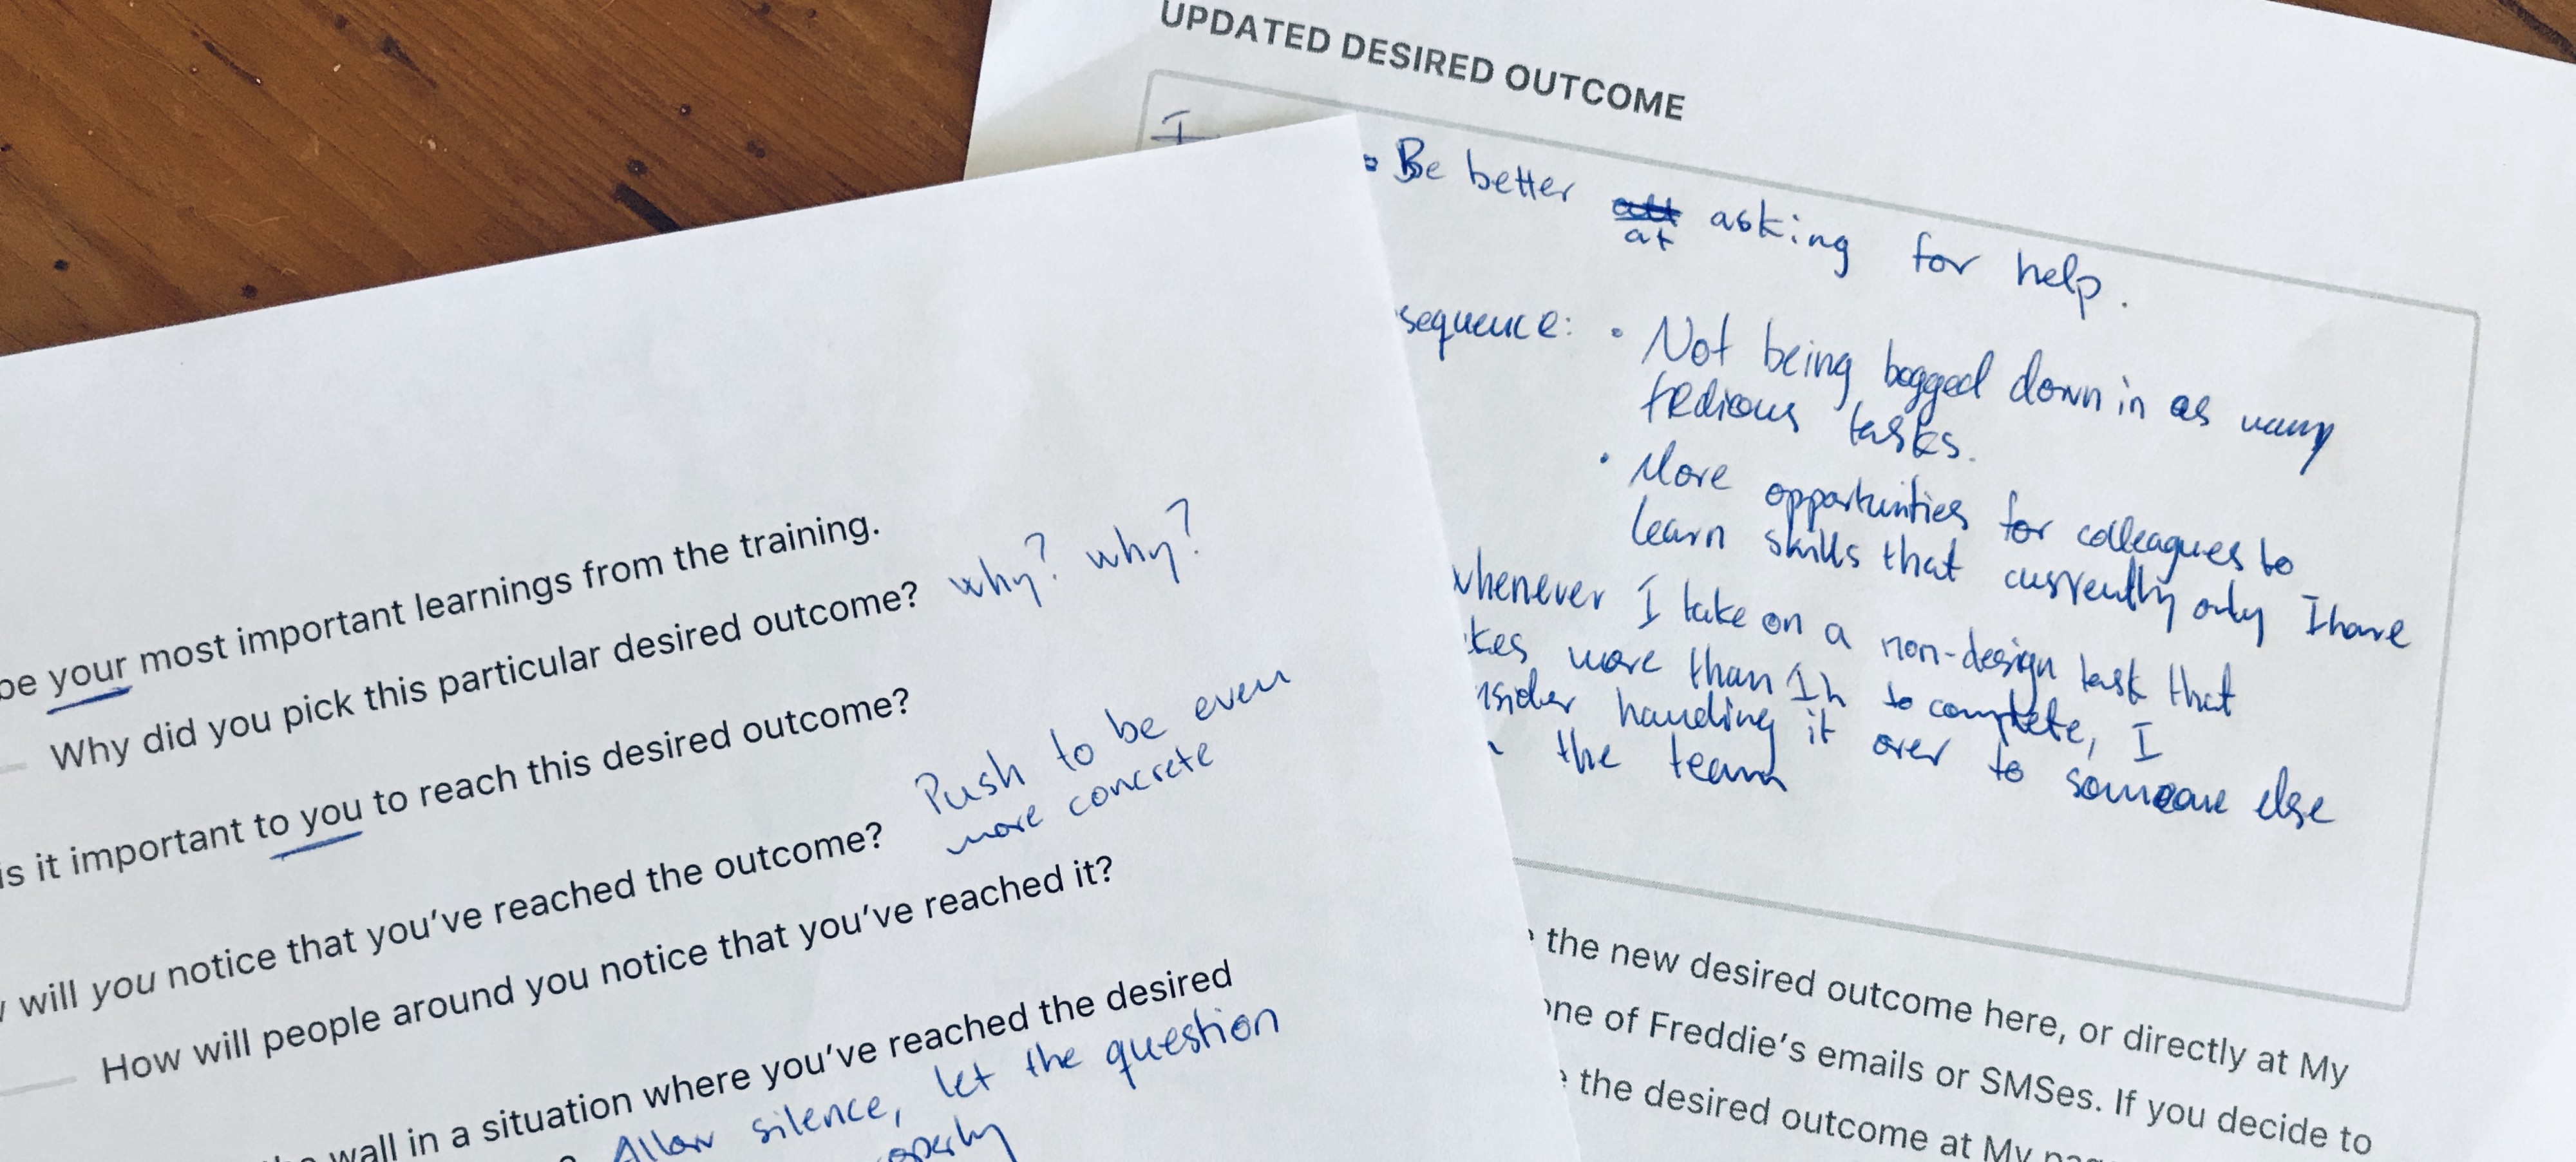 UPDATED DESIRED OUTCOME
I
Be better at asking for help.
sequence: • Not being bogged down in as many
tedious tasks.
• More opportunities for colleagues to
learn skills that currently only I have
whenever I take on a non-design task that
kes more than 1h to complete, I
nsider handing it over to someone else
the team
the new desired outcome here, or directly at My
one of Freddie's emails or SMSes. If you decide to
the desired outcome at My
be your most important learnings from the training.
Why did you pick this particular desired outcome? why? why?
is it important to you to reach this desired outcome?
will you notice that you've reached the outcome? Push to be even
more concrete
How will people around you notice that you've reached it?
wall in a situation where you've reached the desired
Allow silence, let the question